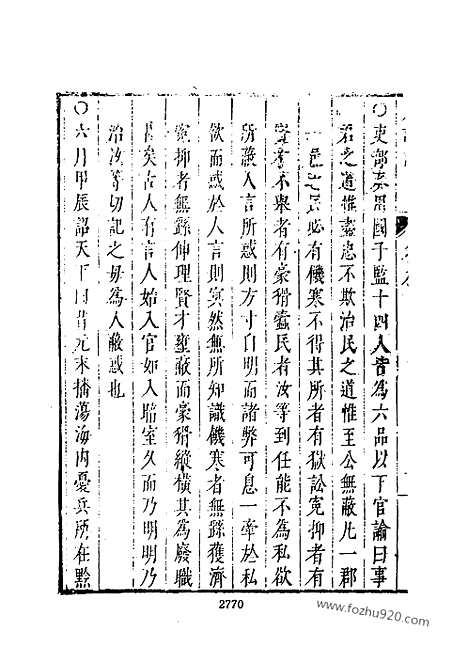 ○吏部奏用國子監十四人皆為六品以下官諭曰事
君之道惟盡忠不欺治民之道惟至公無蔽凡一郡
一邑之民必有饑寒不得其所者有獄訟冤抑者有
不舉者有豪猾蠹民者汝等到任能不為私欲
所蔽人言所惑則方寸自明而諸弊可息一牽於私
欲而或於人言則冥然無所知識饑寒者無繇獲濟
冤抑者無繇伸理賢才壅蔽而豪猾縱橫其為廢職
甚矣古人有言人始入官如入暗室久而乃明明乃
治汝等切記之毋為人蔽惑也
○六月甲辰詔天下曰昔元末播蕩海內憂兵所在黔
2770
www.fozhu920.com